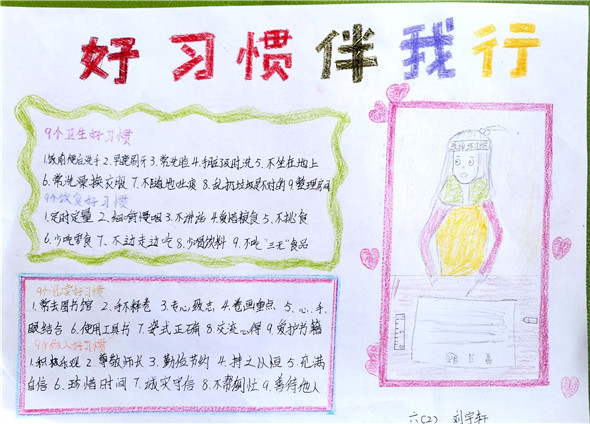 好习惯伴我行
9个卫生好习惯
1.饭前便后洗手 2.早晚刷牙 3.常洗脸 4.手脏及时洗 5.不坐在地上
6.常洗澡换衣服 7.不随地吐痰 8.乱扔垃圾是不对的 9.整理房间
9个饮食好习惯
1.定时定量 2.细嚼慢咽 3.不挑 4.爱惜粮食 5.不挑食
6.少吃零食 7.不边走边吃 8.少喝饮料 9.不吃"三无"食品
9个读书好习惯
1.常去图书馆 2.手不释卷 3.专心致志 4.卷画重点 5.心、手、
眼结合 6.使用工具书 7.姿式正确 8.交流心得 9.爱护书籍
9个做人好习惯
1.积极乐观 2.尊敬师长 3.勤俭节约 4.持之以恒 5.充满
自信 6.珍惜时间 7.诚实守信 8.不帮倒忙 9.善待他人
六(2) 刘宇轩